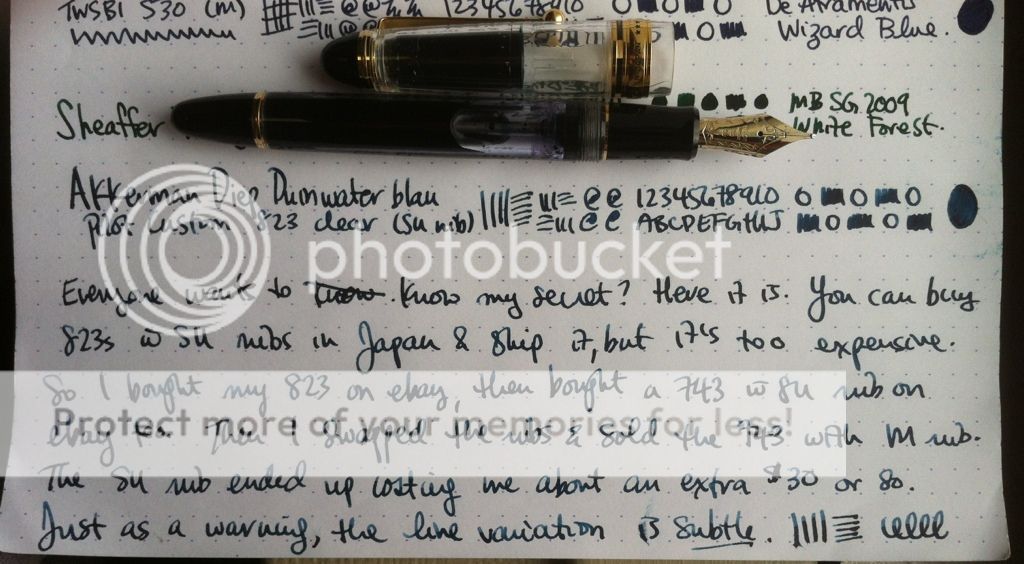 TWSBI 530 (M) 12345678910 De Atramentis
Wizard Blue.
Sheaffer MB SG 2009
White Forest.
Akkerman Diep Duinwater blau 12345678910
Pilot Custom 823 clear (SU nib) ABCDEFGHIJ
photobucket
Everyone wants to know my secret? Here it is. You can buy
823s w SU nibs in Japan & ship it, but it's too expensive.
So I bought my 823 on ebay, then bought a 743 w SU nib on
ebay too. Then I swapped the nibs & sold the 743 with M nib.
Protect more of your memories for less!
The SU nib ended up costing me about an extra $30 or so.
Just as a warning, the line variation is subtle.